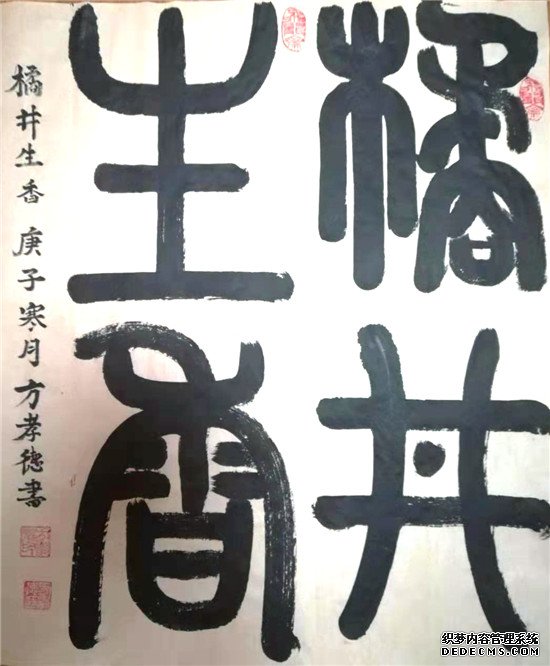 橘井
生香
橘井生香 庚子寒月 方孝德書
织梦内容管理系统
DEDECMS.COM